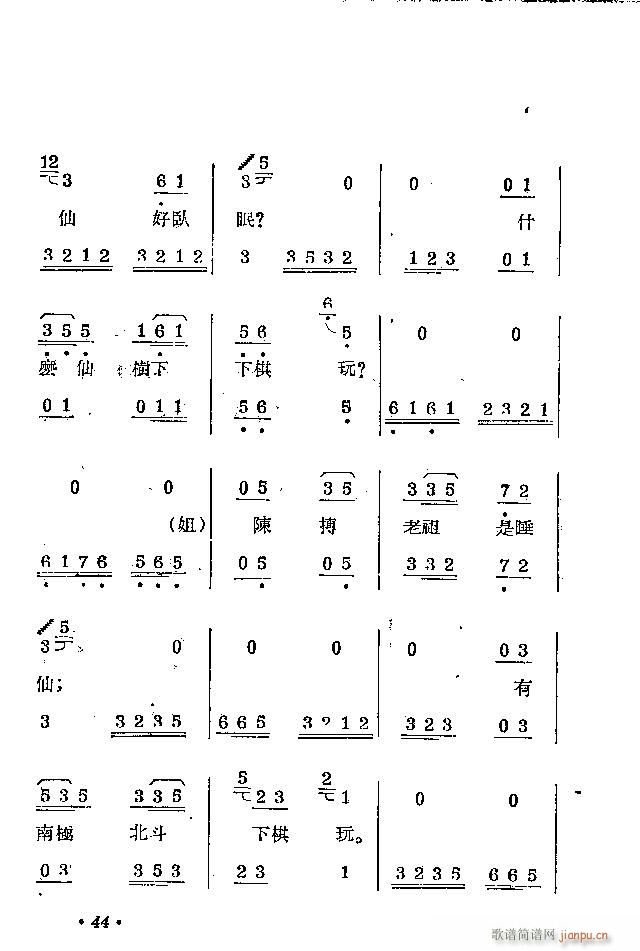 12 5
3 6 1 3 0 0 0 1
仙 好臥 眠? 什
3 2 1 2 3 2 1 2 3 3 5 3 2 1 2 3 0 1
6
3 5 5 1 6 1 5 6 5 0 0
麼 仙 樹下 下棋 玩?
0 1 0 1 1 5 6 5 6 1 6 1 2 3 2 1
0 0 0 5 3 5 3 3 5 7 2
(姐) 陳 摶 老祖 是睡
6 1 7 6 5 6 5 0 5 0 5 3 3 2 7 2
5
3 0 0 0 0 0 3
仙; 有
3 3 2 3 5 6 6 5 3 2 1 2 3 2 3 0 3
5 2
5 3 5 3 3 5 2 3 1 0 0
南極 北斗 下棋 玩。
0 3 3 5 3 2 3 1 3 2 3 5 6 6 5
· 44 ·
歌谱简谱网
jianpu.cn